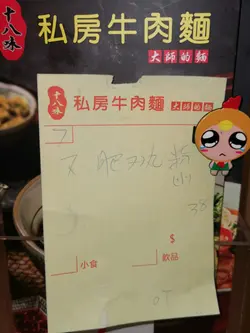 十八味
私房牛肉麵
大師的麵
十八味
私房牛肉麵 大師的麵
7
不肥
小
38
小食
$
飲品
OT